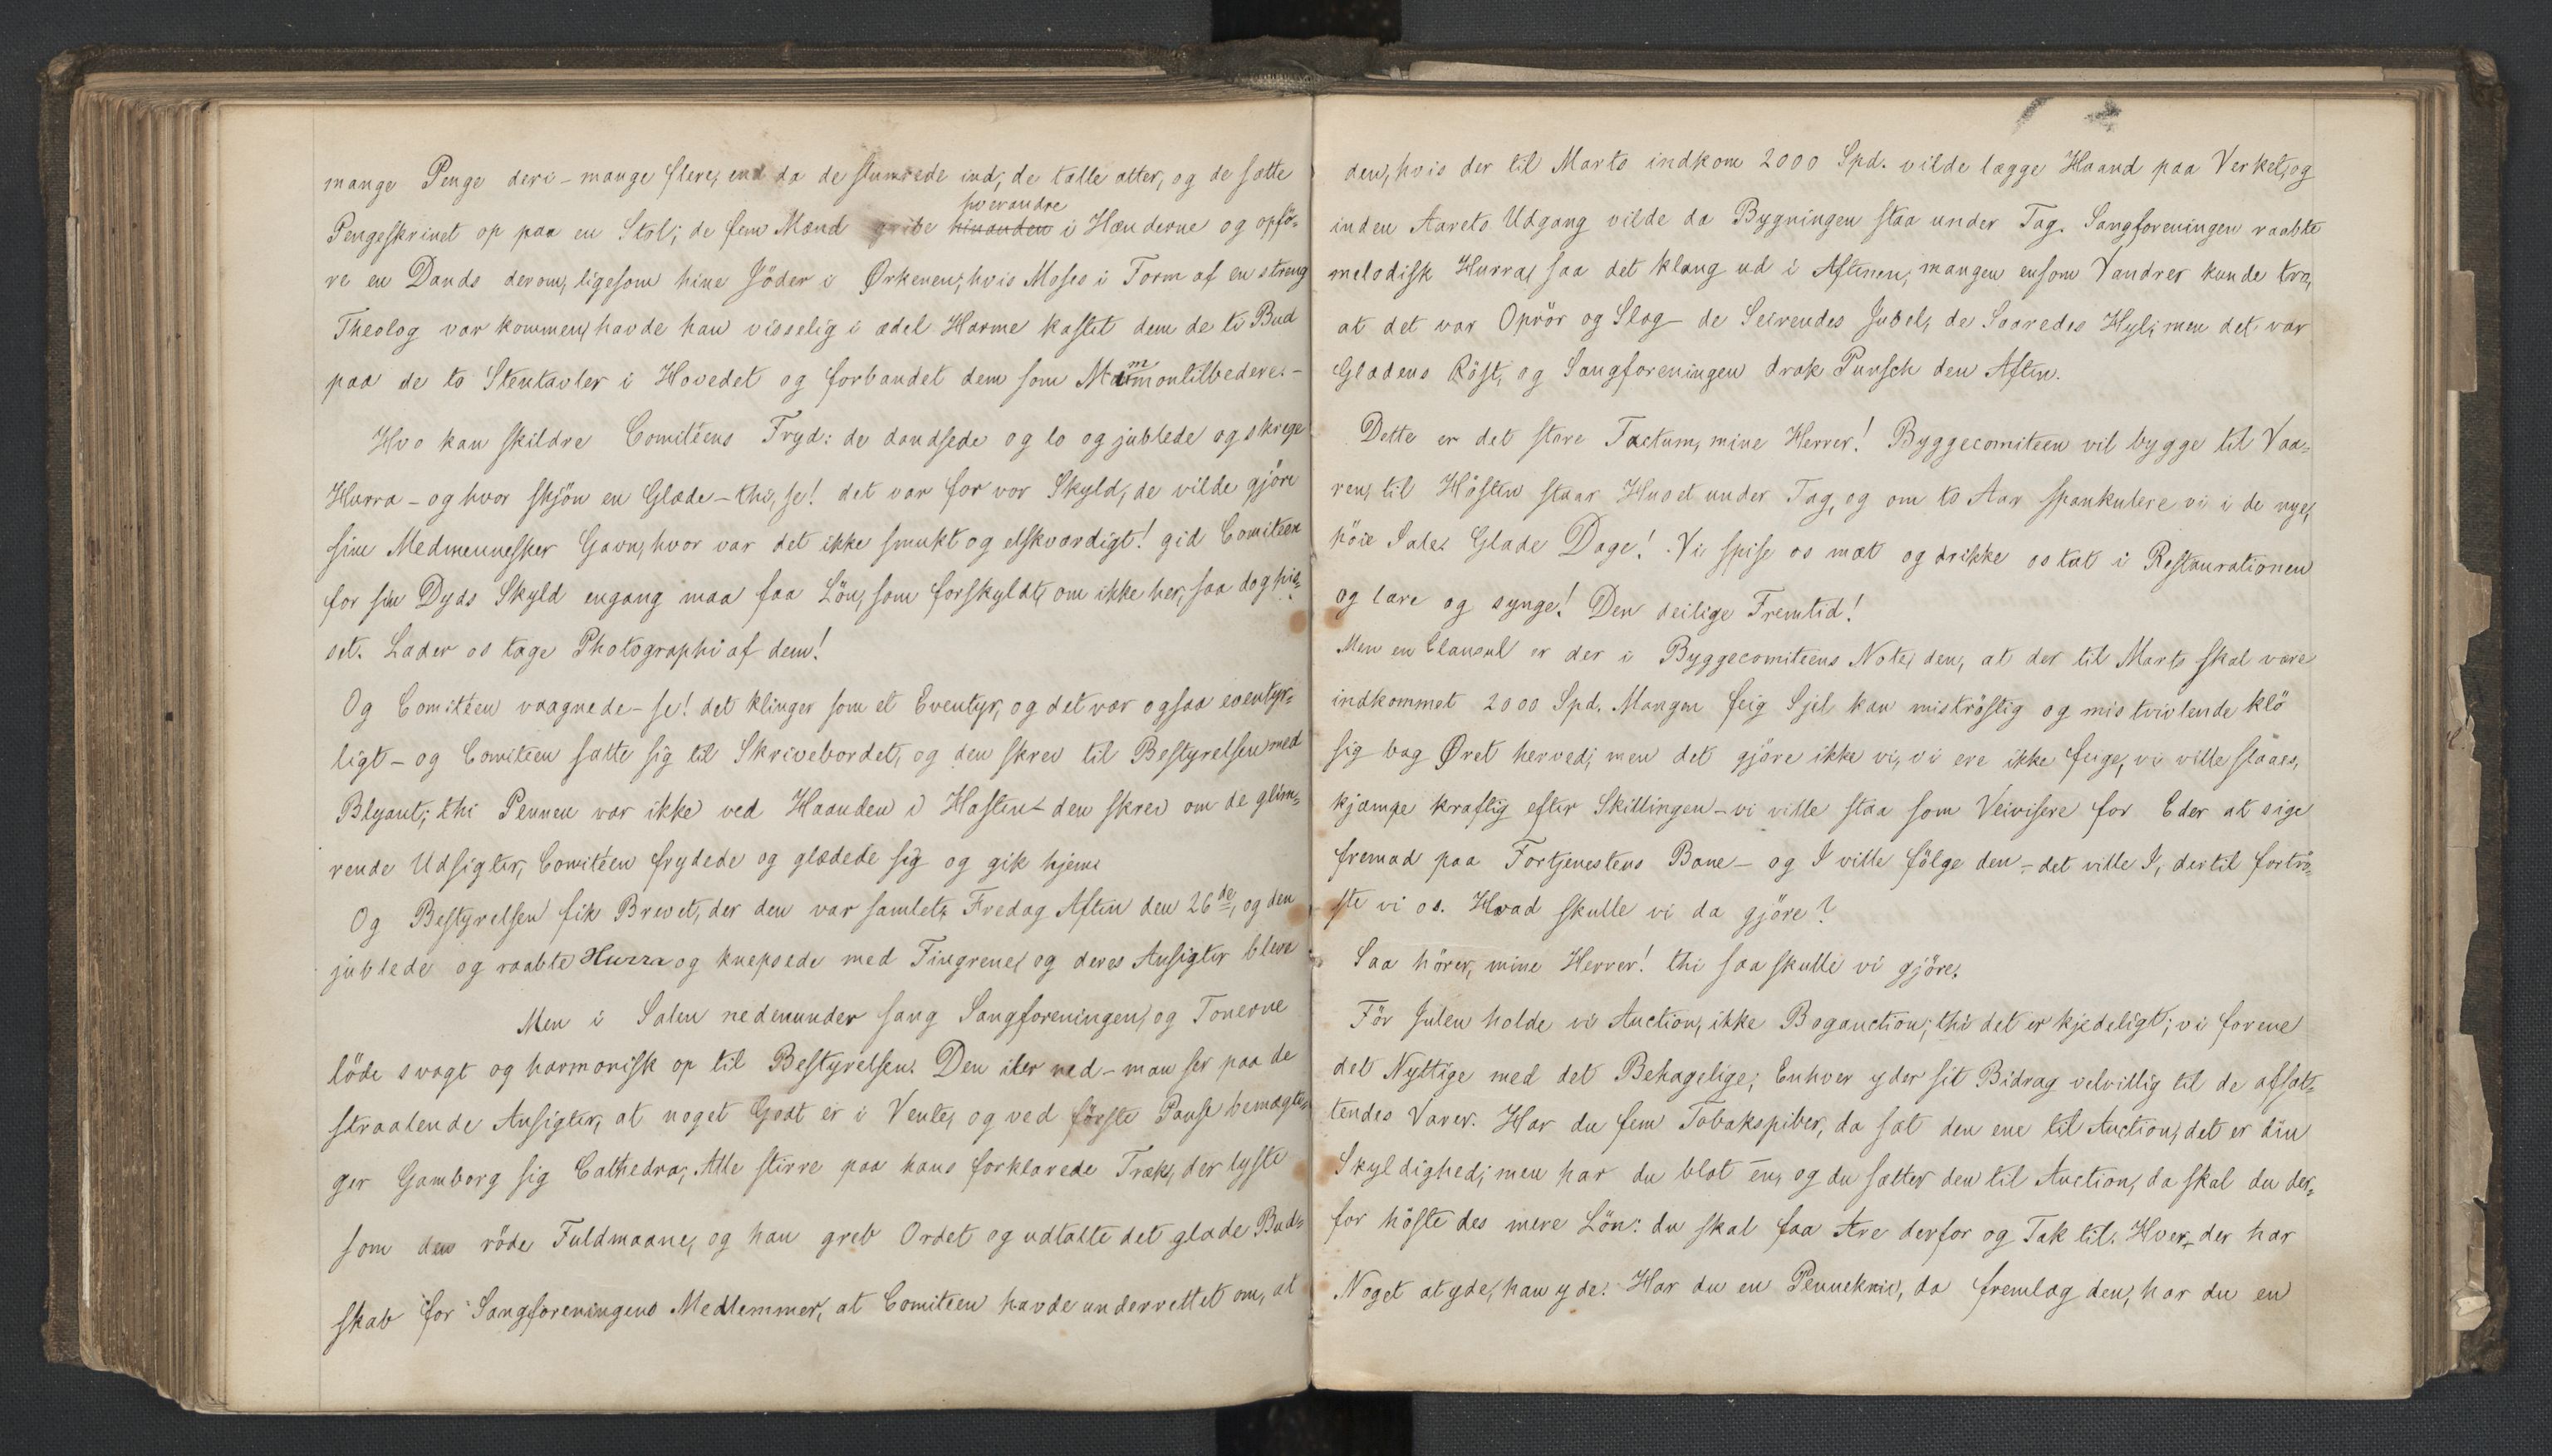 mange Penge deri - mange flere, end da de slumrede ind; de talte atter, og de satte
Pengeskrinet op paa en Stol; de fem Mænd gribe hinanden hverandre i Hænderne og opfö-
re en Dands derom, ligesom hine Jöder i Ørkenen; hvis Moses i Form af en streng
Theolog var kommen, havde han visselig i ædel Harme kastet dem de ti Bud
paa de to Stentavler i Hovedet og forbandet dem som Mammontilbedere. -
Hvo kan skildre Comitéens Fryd: de dandsede og lo og jublede og skrege
Hurra - og hvor skjön en Glæde - thi, se! det var for vor Skyld, de vilde gjöre
sine Medmennesker Gavn, hvor var det ikke smukt og elskværdigt! gid Comiteen
for sin Dyds Skyld engang maa faa Lön, som forskyldt, om ikke her, saa dog his-
set. Lader os tage Photographi af dem!
Og Comitéen vaagnede - se! det klinger som et Eventyr, og det var ogsaa eventyr-
ligt - og Comiteen satte sig til Skrivebordet, og den skrev til Bestyrelsen med
Blyant; thi Pennen var ikke ved Haanden i Hasten - den skrev om de glim-
rende Udsigter, Comitéen frydede og glædede sig og gik hjem.
Og Bestyrelsen fik Brevet, der den var samlet, Fredag Aften den 26de, og den
jublede og raabte Hurra og knepsede med Fingrene, og deres Ansigter bleve
Men i Salen nedenunder sang Sangforeningen, og Tonerne
löde svagt og harmonisk op til Bestyrelsen. Den iler ned - man ser paa de
straalende Ansigter, at noget Godt er i Vente, og ved förste Pause bemægti-
ger Gamborg sig Cathedra; Alle stirre paa hans forklarede Træk, der lyste
som den röde Fuldmaane, og han greb Ordet og udtalte det glade Bud-
skab for Sangforeningens Medlemmer, at Comiteen havde underrettet om, at
den, hvis der til Marts indkom 2000 Spd. vilde lægge Haand paa Verket, og
inden Aarets Udgang vilde da Bygningen staa under Tag. Sangforeningen raabte
melodisk Hurra, saa det klang ud i Aftenen; mangen ensom Vandrer kunde tro,
at det var Oprör og Slag - de Seirendes Jubel, de Saaredes Hyl; men det var
Glædens Röst, og Sangforeningen drak Punsch den Aften.
Dette er det store Factum, mine Herrer! Byggecomiteen vil bygge til Vaa-
ren, til Hösten staar Huset under Tag, og om to Aar spankulere vi i de nye,
höie Sale. Glade Dage! Vi spise os mæt og drikke os tæt i Restaurationen
og lære og synge! Den deilige Fremtid!
Men en Clausul er der i Byggecomiteens Note, den, at der til Marts skal være
indkommet 2000 Spd. Mangen feig Sjel kan miströstig og mistvivlende klö
sig bag Øret herved; men det gjöre ikke vi, vi ere ikke feige, vi ville slaaes,
kjæmpe kraftig efter Skillingen - vi ville staa som Veivisere for Eder at sige
fremad paa Fortjenestens Bane - og I ville fölge den - det ville I, dertil fortrö-
ste vi os. Hvad skulle vi da gjöre?
Saa hörer, mine Herrer! thi saa skulle vi gjöre.
För Julen holde vi Auction, ikke Bogauction; thi det er kjedeligt; vi forene
det Nyttige med det Behagelige; Enhver yder sit Bidrag velvillig til de afsæt-
tendes Varer. Har du fem Tobakspiber, da sæt den ene til Auction, det er din
Skyldighed; men har du blot én, og du sætter den til Auction, da skal du der-
for höste des mere Lön: du skal faa Ære derfor og Tak til. Hver, der har
Noget at yde, han yde. Har du en Pennekniv, da fremlæg den, har du en